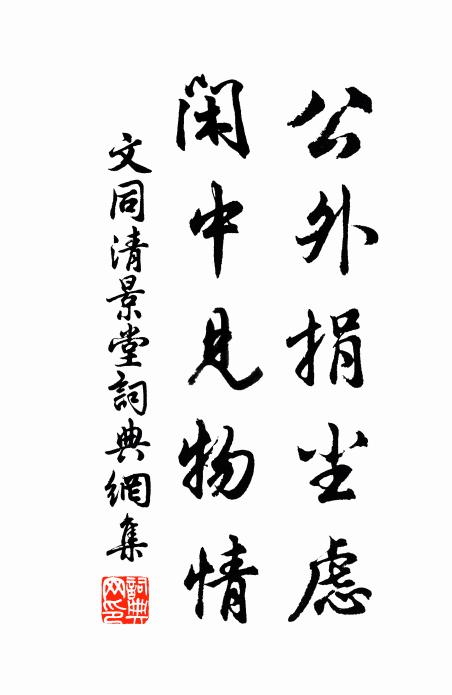 公外捐尘慮
閑中見物情
文同清景堂詞典網集
詞典网印